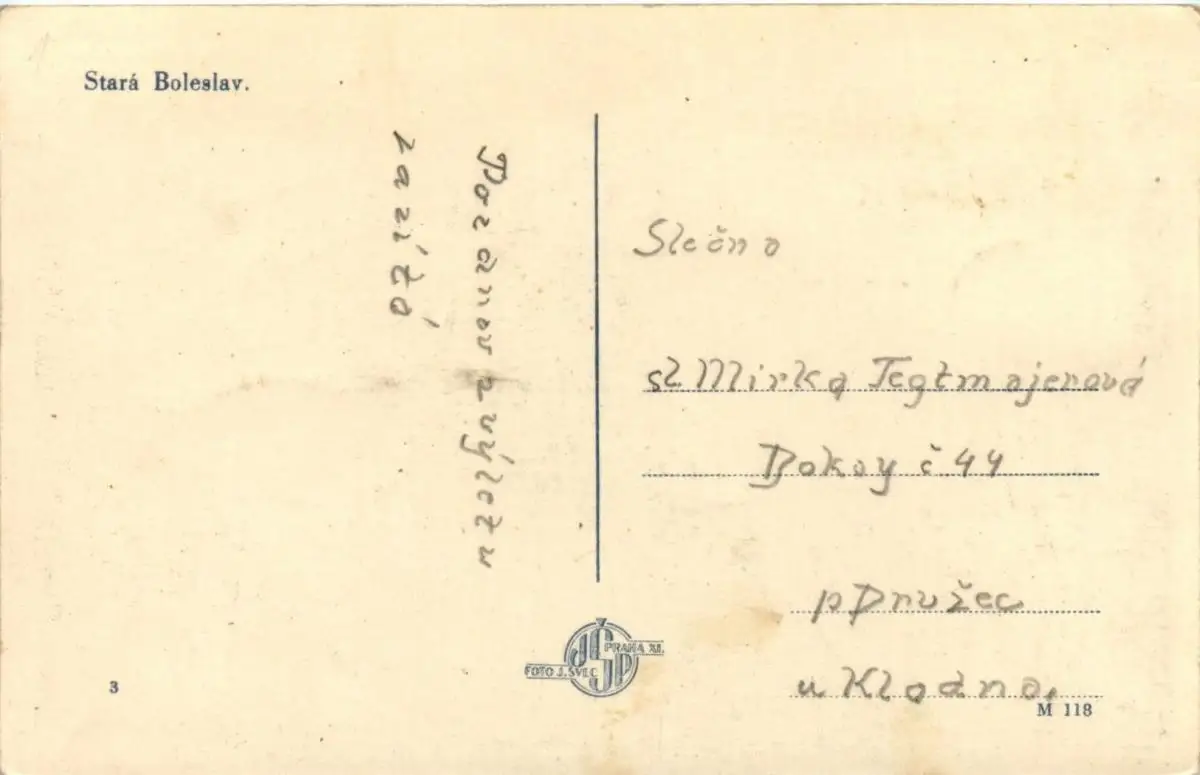 Stará Boleslav.
Pozdrav z výletu
Slečna
sl. Mirka Tegtmajerová
Dokoy č. 44
p Družec
u Kladna.
FOTO J. ŠVEC
PRAHA XI.
3
M 118